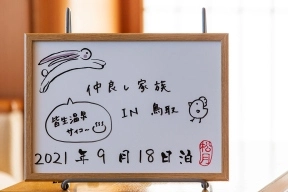 仲良し家族
IN 鳥取
皆生温泉
サイコー♨
2021年9月18日泊
松月